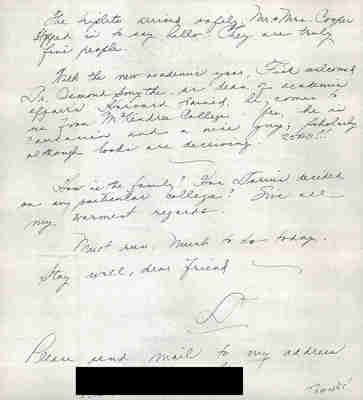 The triplets arrived safely. Mr & Mrs. Cooper
stopped in to say hello. They are truly
fine people.
With the new academic year, Fisk welcomed
Dr. Desmond Smythe as dean of academic
affairs. Harvard trained, he comes to
us from McKendree College. Yes, he is
and a nice guy, scholarly
although looks are deceiving.
How is the family? Has Darius decided
on any particular college? Give all
my warmest regards.
Must run. Much to do today.
Stay well, dear friend
D
Please send mail to my address